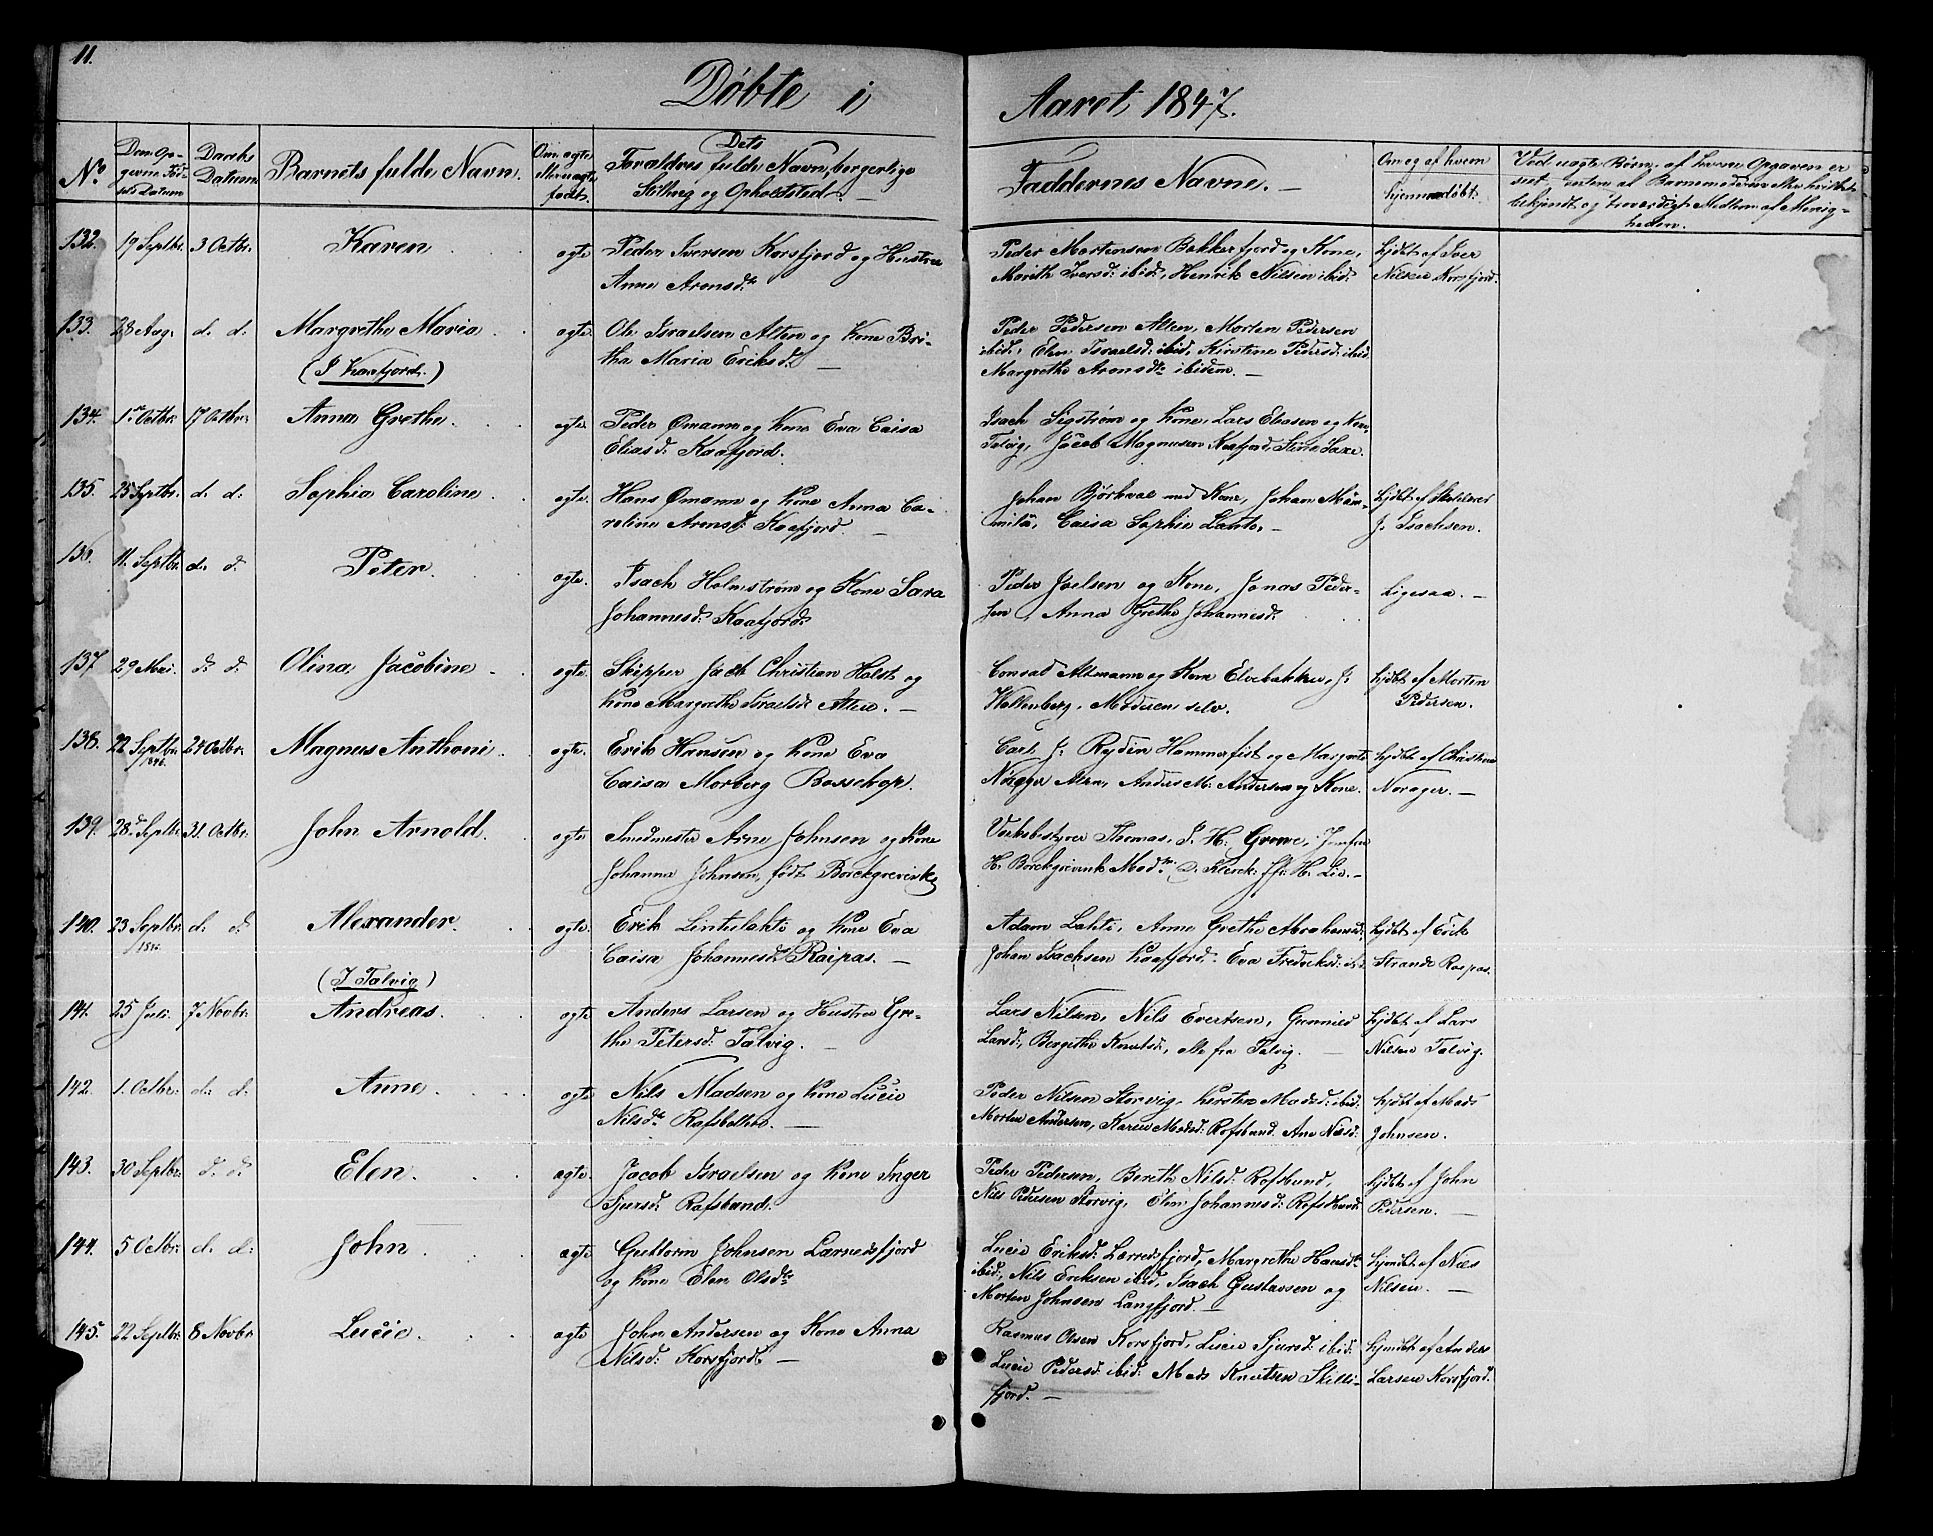 11.
Døbte i Aaret 1847.
No
Barnets fulde Navn.
Dets
Forældres fulde Navn, borgerlige
Stilling og Opholdsted. —
Faddernes Navne. —
Om og af hvem
hjemmedøbt.
132. 19 Septbr. 3 Octbr. Karen ægte Peder Iversen Korsfjord og Hustru
Anne Arensdt.
Peder Mortensen Bakkerfjord og Kone,
Marith Iversd: ibid:, Henrik Nilsen ibid:
hjdbt af Iver
Nilsen Korsfjord.
133. 28 Aug. d. d: Margrethe Maria ægte Ole Israelsen Alten og Kone Bri-
(I Kaafjord.) tha Maria Eriksd: —
Peder Pedersen Alten, Morten Pedersen
ibid:, Elen Israelsd: ibid, Kirstine Pedersd: ibid
Margrethe Arensdt. ibidem. —
134. 1 Octbr. 17 Octbr: Anna Grethe. ægte. Peder Ømann og Kone Eva Caisa
Eliasd: Kaafjord.
Isach Sigstrøm og Kone, Lars Eliasen og Kone
Talvig, Jacob Magnusen Kaafjord,
135. 25 Septbr. d. d: Sophia Caroline. ægte. Hans Ømann og Kone Anna Ca-
roline Arensd: Kaafjord. —
Johan Bjørkvae med Kone, Johan
Caisa Sophie Lanto. —
hjdbt. af
J. Isachsen.
136. 11. Septbr. d. d. Peter. ægte. Isach Holmstrøm og Kone Sara
Johannesd: Kaafjord.
Peder Joelsen og Kone, Jonas Peder-
sen, Anna Grethe Johannesd:
Ligesaa. —
137 29 Mai. d. d. Olina Jacobine ægte. Skipper Jacob Christian Holst og
Kone Margrethe Israelsd: Alten. —
Conrad Altmann og Kone Elvebakken, J:
Wollenberg, Moderen selv.
hjdbt. af Morten
Pedersen.
138. 22 Septbr. 24 Octbr. Magnus Anthoni ægte. Erik Hansen og Kone Eva
/1846. Caisa Morberg Bossekop.
Carl J: Rydin Hammerfest og Margrete
Norager Alten, Anders M: Andersen og Kone.
hjdbt af Christine
Norager. —
139. 28. Septbr. 31. Octbr. John Arnold. ægte Smedmester Arne Johnsen og Kone
Johanna Johnsen, født Borckgrevinck
Verksbestyrer Thomas, J. H. Grove, Jomfru
H. Borckgrevink
140. 23 Septbr. d. d. Alexander. ægte. Erik Lintulahti og Kone Eva
Caisa Johannesd: Raipas. —
Adam Lahti, Anne Grethe Abrahamsd:
Johan Isachsen Kaafjord. Eva Fredriksd: ibd
hjdbt af Erik
Strande Raipas.
(I Talvig)
141. 25 Juli. 7 Novbr. Andreas. ægte Anders Larsen og Hustru Gre-
the Petersd: Talvig. —
Lars Nilsen, Nils Evertsen, Gunnild
Larsd:, Bergithe Knutsd:, alle fra Talvig. —
hjdbt af Lars
Nilsen Talvig.
142. 1. Octbr. d. d. Anne ægte Nils Madsen og Kone Lucie
Nilsdt. Rafsbotten. —
Peder Nilsen Storvig, Kirsten Madsd: ibid:
Morten Andersen, Karen Madsd: Rafsbund. Ane Nilsd:
hjdbt af Mads
Johnsen.
143. 30 Septbr. d. d. Elen. ægte. Jacob Israelsen og Kone Inger
Sjursd: Rafsbund.
Peder Pedersen, Bereth Nilsd: Rafsbund,
Nils Pedersen Storvig, Elen Johannesd: Rafsbund.
hjdbt af John
Pedersen. —
144. 5 Octbr. d. d: John. ægte Guttorm Johnsen Larnedsfjord
og Kone Elen Olsdt.
Lucie Eriksd: Lerredsfjord, Margrethe Hansdt.
ibid:, Nils Eriksen ibid, Isach Gustavsen og
Morten Johnsen Langfjord. —
hjemdbt. af Niels
Nilsen. —
145. 22 Septbr. 8 Novbr Lucie. ægte John Andersen og Kone Anna
Nilsd: Korsfjord. —
Rasmus Olsen Korsfjord, Lucie Sjursd: ibid:
Lucie Pedersd: ibid: Mads Knutsen Skilli-
fjord. —
hjemdbt af Anders
Larsen Korsfjord.